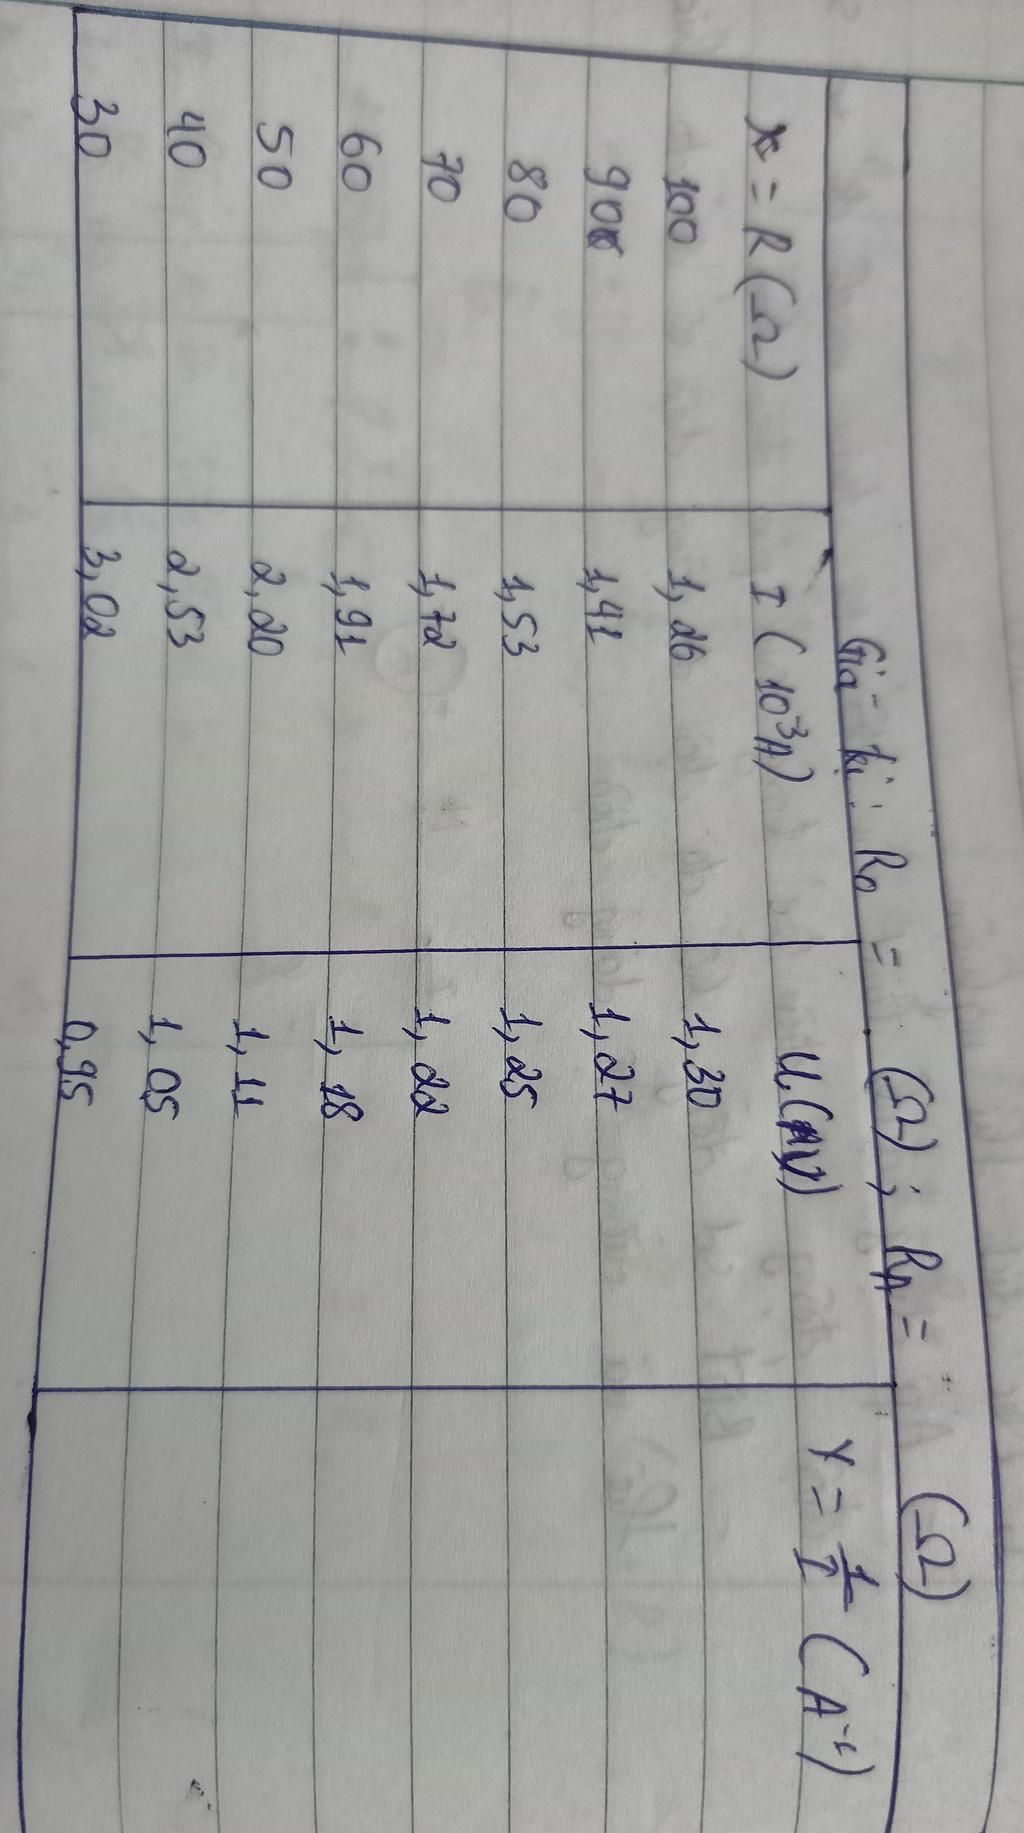 Giá trị: R₀ = (Ω); Rₐ = (Ω)
x = R (Ω) I (10⁻³A) U (V) Y = 1/I (A⁻¹)
100 1,26 1,30
90 1,41 1,27
80 1,53 1,25
70 1,72 1,22
60 1,91 1,18
50 2,20 1,11
40 2,53 1,05
30 3,02 0,95